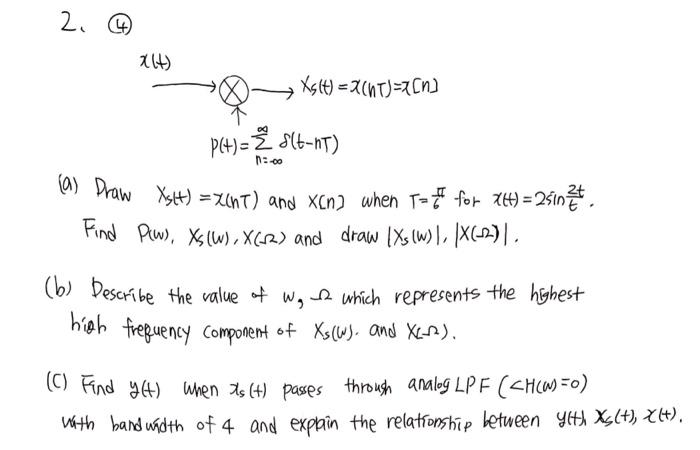 2. ④
x(t)
Xs(t) = x(nT) = x[n]
p(t) = ∞ Σ n=-∞ δ(t-nT)
(a) Draw Xs(t) = x(nT) and X[n] when T = π/6 for x(t) = 2sin 2t/t .
Find P(w), Xs(w), X(Ω) and draw |Xs(w)|, |X(Ω)|.
(b) Describe the value of w, Ω which represents the highest
high frequency component of Xs(w). and X(Ω).
(C) Find y(t) when xs(t) passes through analog LPF (<H(w)=0)
with bandwidth of 4 and explain the relationship between y(t), Xs(t), x(t).